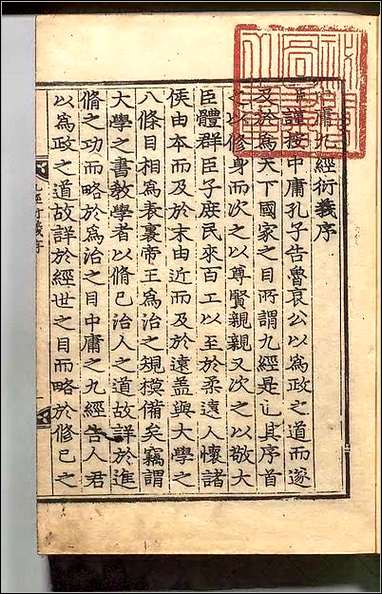 中庸九經衍義序
謹按中庸孔子告魯哀公以爲政之道而遂
及於爲天下國家之目所謂九經是已其序首
之以修身而次之以尊賢親親又次之以敬大
臣體群臣子庶民來百工以至於柔遠人懷諸
侯由本而及於末由近而及於遠盖與大學之
八條目相為表裏帝王爲治之規模備矣竊謂
大學之書敎學者以脩已治人之道故詳於進
脩之功而略於爲治之目中庸之九經告人君
以爲政之道故詳於經世之目而略於修已之
九經衍義序